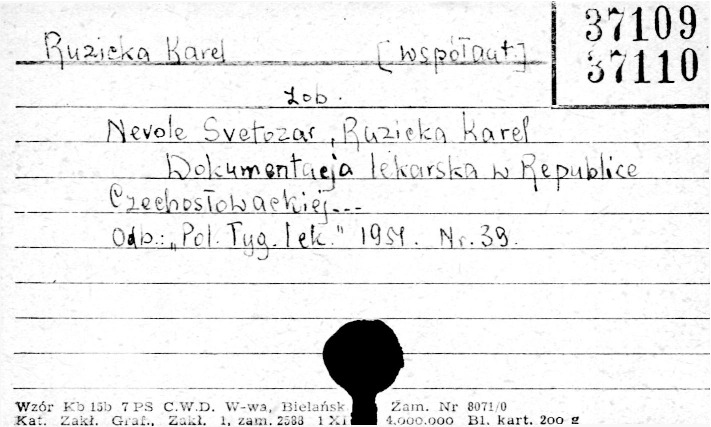 37109
37110
Ruzicka Karel [współaut]
zob.
Nevole Svetozar, Ruzicka Karel
Dokumentacja lekarska w Republice
Czechosłowackiej...
Odb.: „Pol. Tyg. lek." 1954. Nr. 39.
Wzór Kb 15b 7 PS C.W.D. W-wa, Bielańsk Zam. Nr 8071/0
Kat. Zakł. Graf., Zakł. 1, zam. 2588 1 XI 4.000.000 Bl. kart. 200 g